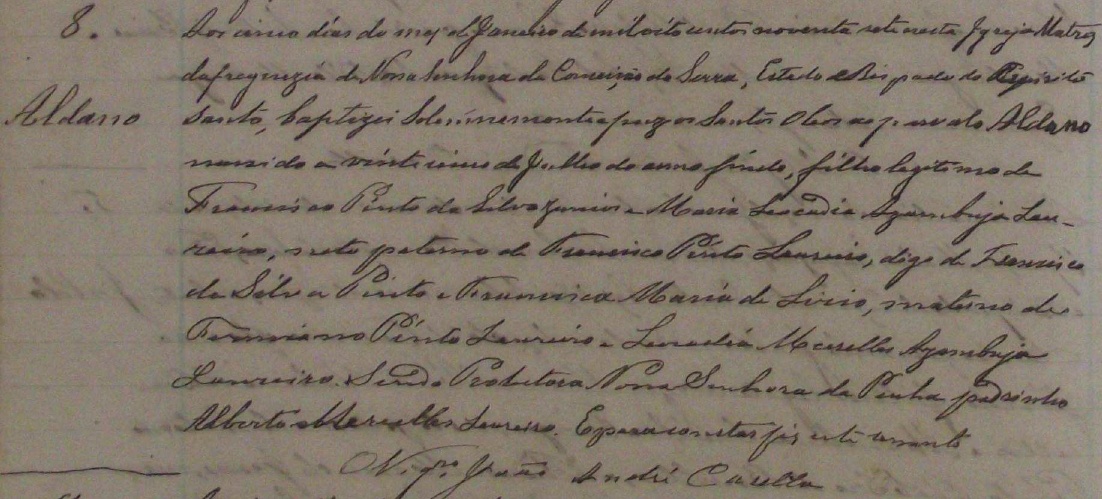 8.
Aldano
Aos cinco dias do mez de Janeiro de mil oito centos noventa sete nesta Igreja Matriz
da freguezia de Nossa Senhora da Conceição da Serra, Estado e Bispado do Espirito
Santo, baptizei Solemnemente e puz os Santos Oleos ao parvulo Aldano
nascido a vinte cinco de Julho do anno findo, filho legitimo de
Francisco Pinto da Silva Junior e Maria Leocadia Azambuja Lou-
reiro, neto paterno de Francisco Pinto Loureiro, digo de Francisco
da Silva Pinto e Francisca Maria de, materno de
Pinto Loureiro e Leocadia Meirelles Azambuja
Loureiro. Sendo Protectora Nossa Senhora da Penha padrinho
Alberto Meirelles Loureiro. E para constar fiz este assento
O Vigro João André Casella